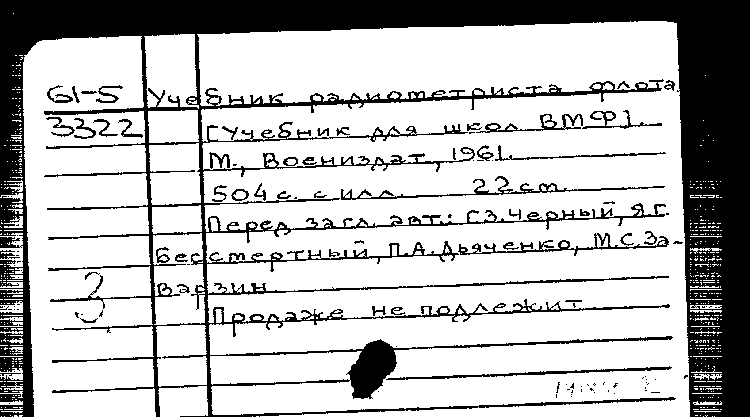 61-5 Учебник радиометриста флота
3322 [Учебник для школ ВМФ].
М., Воениздат, 1961.
504 с. с илл. 22 cm
Перед загл. авт.: Г.З. Черный, Я.Г.
Бессмертный, П.А. Дьяченко, М.С. За-
варзин
3
Продаже не подлежит